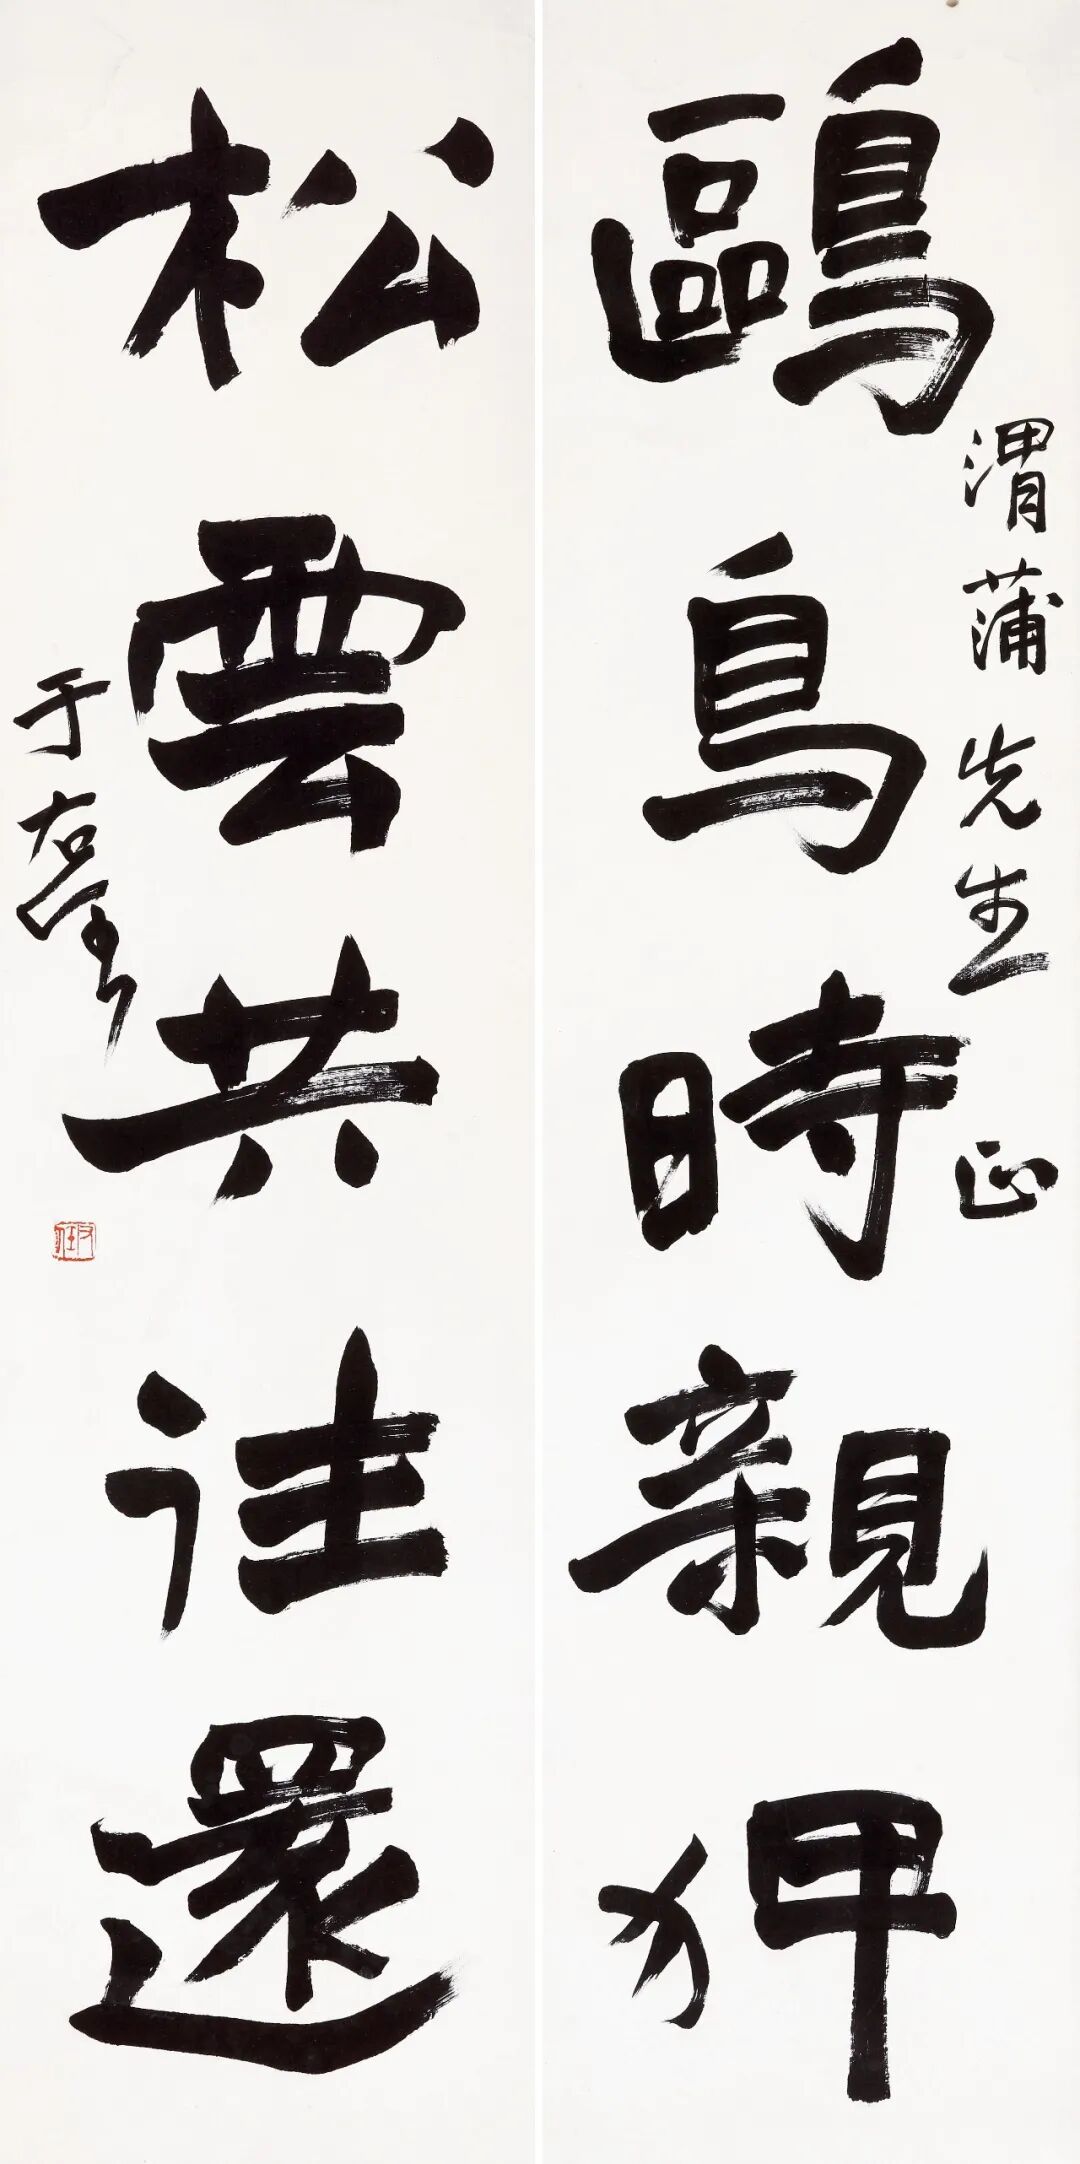 渭蒲先生正
鷗鳥時親狎
松雲共往還
于右任
右任